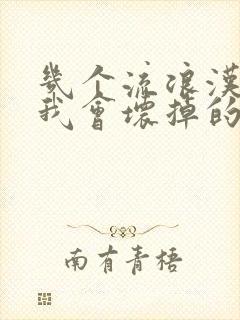 幾个流浪漢
我會壞掉的
南有青梧